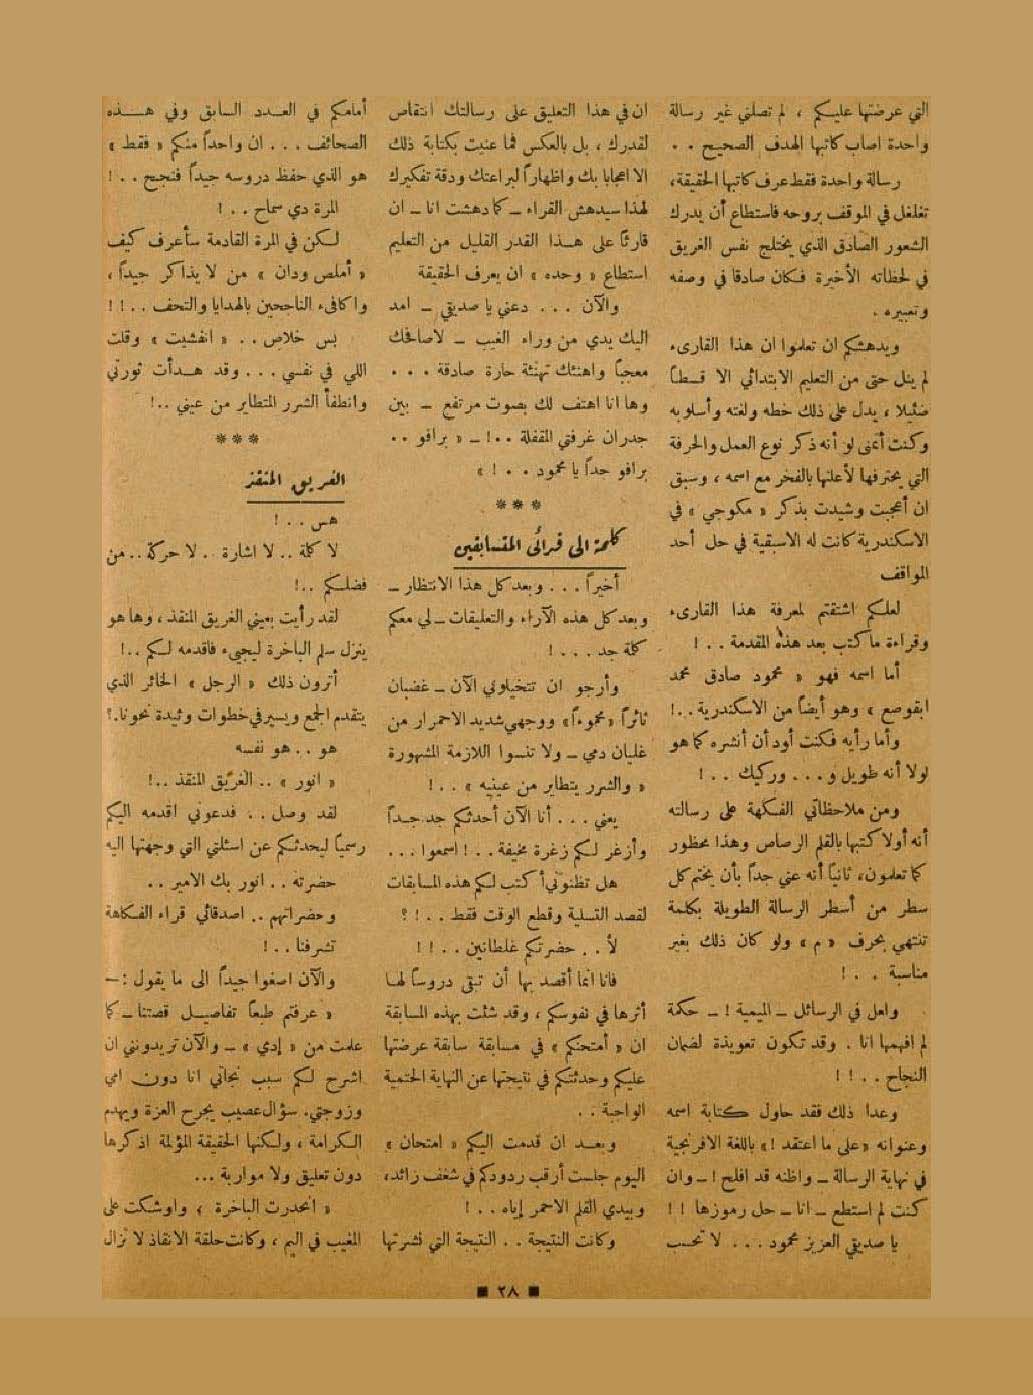 التي عرضتها عليكم ، لم تصلني غير رسالة
واحدة اصاب كاتبها الهدف الصحيح . .
رسالة واحدة فقط عرف كاتبها الحقيقة،
تغلغل في الموقف بروحه فاستطاع أن يدرك
الشعور الصادق الذي يختلج نفس الغريق
في لحظاته الأخيرة فكان صادقا في وصفه
وتعبيره .
ويدهشكم ان تعلموا ان هذا القارىء
لم ينل حتى من التعليم الابتدائي الا قسطاً
ضئيلا ، يدل على ذلك خطه ولغته وأسلوبه
وكنت أتمنى لو أنه ذكر نوع العمل والحرفة
التي يحترفها لأعلنها بالفخر مع اسمه ، وسبق
ان أعجبت وشيدت بذكر « مكوجي » في
الاسكندرية كانت له الاسبقية في حل أحد
المواقف
لعلكم اشتقتم لمعرفة هذا القارىء
وقراءة ما كتب بعد هذه المقدمة . . !
أما اسمه فهو « محمود صادق محمد
ابقوصع » وهو أيضاً من الاسكندرية . . !
وأما رأيه فكنت أود أن أنشره كما هو
لولا أنه طويل و . . . وركيك . . !
ومن ملاحظاتي الفكهة على رسالته
أنه أولا كتبها بالقلم الرصاص وهذا محظور
كما تعلمون، ثانياً أنه عني جداً بأن يختم كل
سطر من أسطر الرسالة الطويلة بكلمة
تنتهي بحرف « م » ولو كان ذلك بغير
مناسبة . . !
ولعل في الرسائل ـ الميمية ! ـ حكمة
لم افهمها انا . وقد تكون تعويذة لضمان
النجاح . . ! !
وعدا ذلك فقد حاول كتابة اسمه
وعنوانه « على ما اعتقد !» باللغة الافرنجية
في نهاية الرسالة ـ واظنه قد افلح ! ـ وان
كنت لم استطع ـ انا ـ حل رموزها ! !
يا صديقي العزيز محمود . . . لا تحسب
ان في هذا التعليق على رسالتك انتقاص
لقدرك ، بل بالعكس فما عنيت بكتابة ذلك
الا اعجابا بك واظهاراً لبراعتك ودقة تفكيرك
لهذا سيدهش القراء ـ كما دهشت انا ـ ان
قارئاً على هذا القدر القليل من التعليم
استطاع « وحده » ان يعرف الحقيقة
والآن . . . دعني يا صديقي ـ امد
اليك يدي من وراء الغيب ـ لاصافحك
معجباً واهنئك تهنئة حارة صادقة . . .
وها انا اهتف لك بصوت مرتفع ـ بين
جدران غرفتي المقفلة . . ! ـ « برافو . .
برافو جداً يا محمود . . ! »
***
كلمة الى قرائي المتسابقين
أخيراً . . . وبعد كل هذا الانتظار ـ
وبعد كل هذه الآراء والتعليقات ـ لي معكم
كلمة جد . . . !
وأرجو ان تتخيلوني الآن ـ غضبان
ثائراً « محموءاً » ووجهي شديد الاحمرار من
غليان دمي ـ ولا تنسوا اللازمة المشهورة
« والشرر يتطاير من عينيه » . . !
يعني . . . أنا الآن أحدثكم جد جداً
وأزغر لكم زغرة مخيفة . . ! اسمعوا . . .
هل تظنوني أكتب لكم هذه المسابقات
لقصد التسلية وقطع الوقت فقط . . ! ؟
لأ . . حضرتكم غلطانين . . ! !
فانا انما أقصد بها أن تبقى دروساً لها
أثرها في نفوسكم ، وقد شئت بهذه المسابقة
ان « أمتحنكم » في مسابقة سابقة عرضتها
عليكم وحدثتكم في نتيجتها عن النهاية الحتمية
الواجبة . .
وبعد ان قدمت اليكم « امتحان »
اليوم جلست أرقب ردودكم في شغف زائد،
وبيدي القلم الاحمر إياه . . !
وكانت النتيجة . . النتيجة التي نشرتها
أمامكم في العدد السابق وفي هذه
الصحائف . . . ان واحداً منكم « فقط »
هو الذي حفظ دروسه جيداً فنجح . . !
المرة دي سماح . . !
لكن في المرة القادمة سأعرف كيف
« أملص ودان » من لا يذاكر جيداً ،
واكافىء الناجحين بالهدايا والتحف . . ! !
بس خلاص . . « انفشيت » وقلت
اللي في نفسي . . . وقد هدأت ثورتي
وانطفأ الشرر المتطاير من عيني . . !
***
الغريق المنقذ
هس . . !
لا كلمة . . لا اشارة . . لا حركة . . من
فضلكم . . !
لقد رأيت بعيني الغريق المنقذ ، وها هو
ينزل سلم الباخرة ليجيء فاقدمه لكم . . !
أترون ذلك « الرجل » الخائر الذي
يتقدم الجمع ويسير في خطوات وئيدة نحونا . ؟
هو . . هو نفسه
« انور » . . الغريق المنقذ . . !
لقد وصل . . فدعوني اقدمه اليكم
رسمياً ليحدثكم عن اسئلتي التي وجهتها اليه
حضرته . . انور بك الامير . .
وحضراتهم . . اصدقائي قراء الفكاهة
تشرفنا . . !
والآن اصغوا جيداً الى ما يقول : ـ
« عرفتم طبعاً تفاصيل قصتنا ـ كما
علمت من « إدي » ـ والآن تريدونني ان
اشرح لكم سبب نجاتي انا دون امي
وزوجتي. سؤال عصيب يجرح العزة ويهدم
الكرامة ، ولكنها الحقيقة المؤلمة اذكرها
دون تعليق ولا مواربة ...
« انحدرت الباخرة ، واوشكت على
المغيب في اليم ، وكانت حلقة الانقاذ لا تزال
■ ٢٨ ■